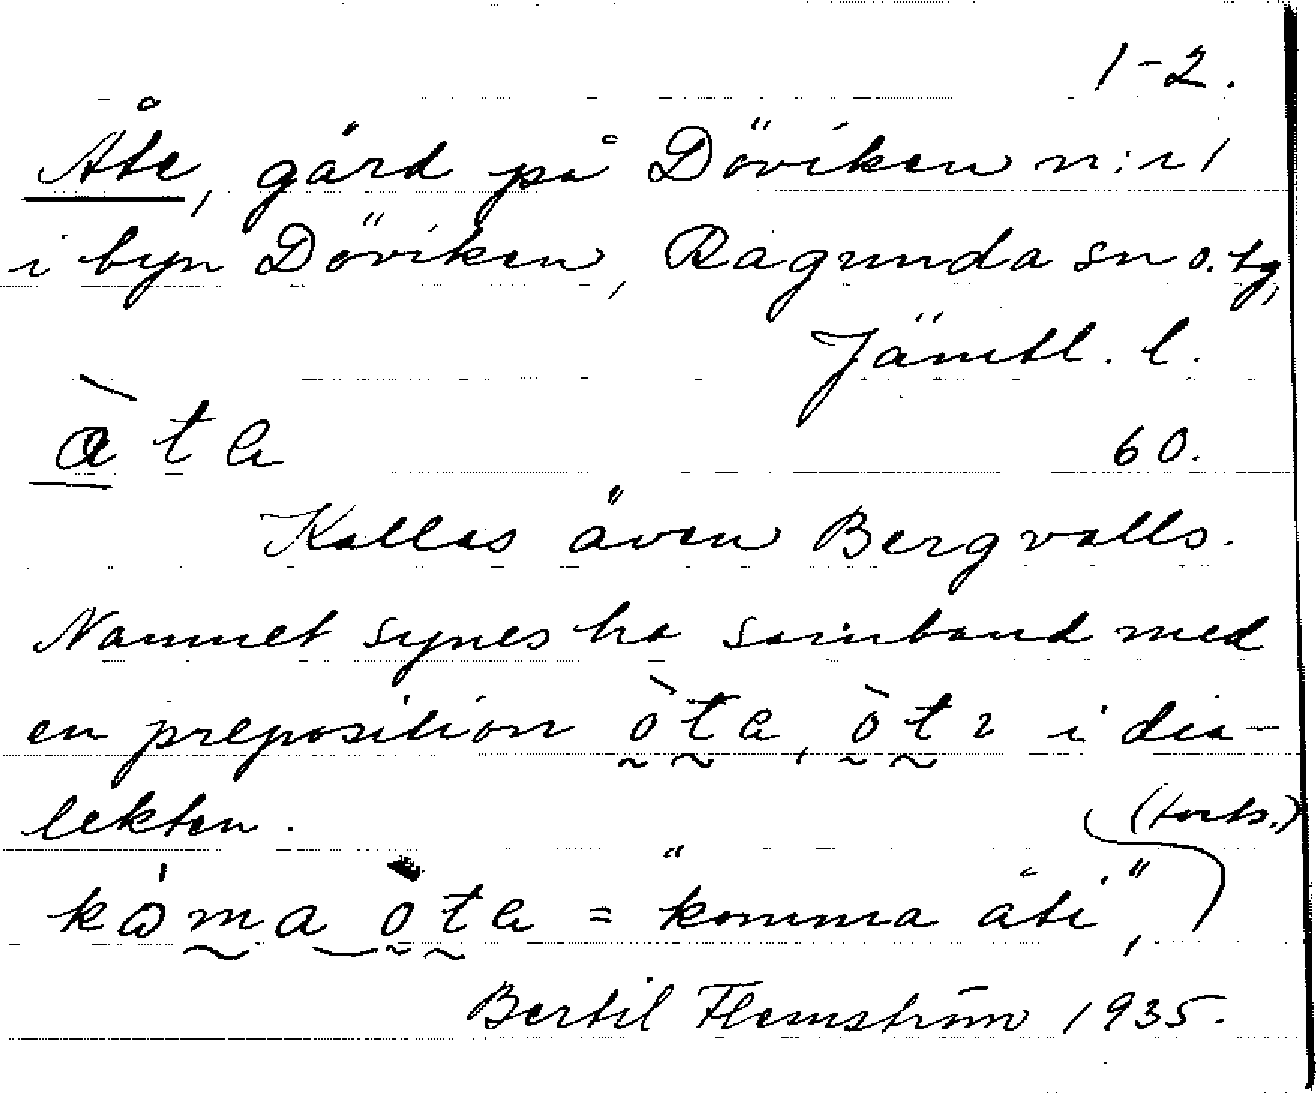 1-2.
Åte, gård på Döviken n:r 1
i byn Döviken, Ragunda sn o. tg,
Jämtl. l.
àte
60.
Kallas även Bergvalls.
Namnet synes ha samband med
en preposition òte, òtı i dia-
lekten.
(forts.)
kåma òte = "komma åti",
Bertil Flemström 1935.